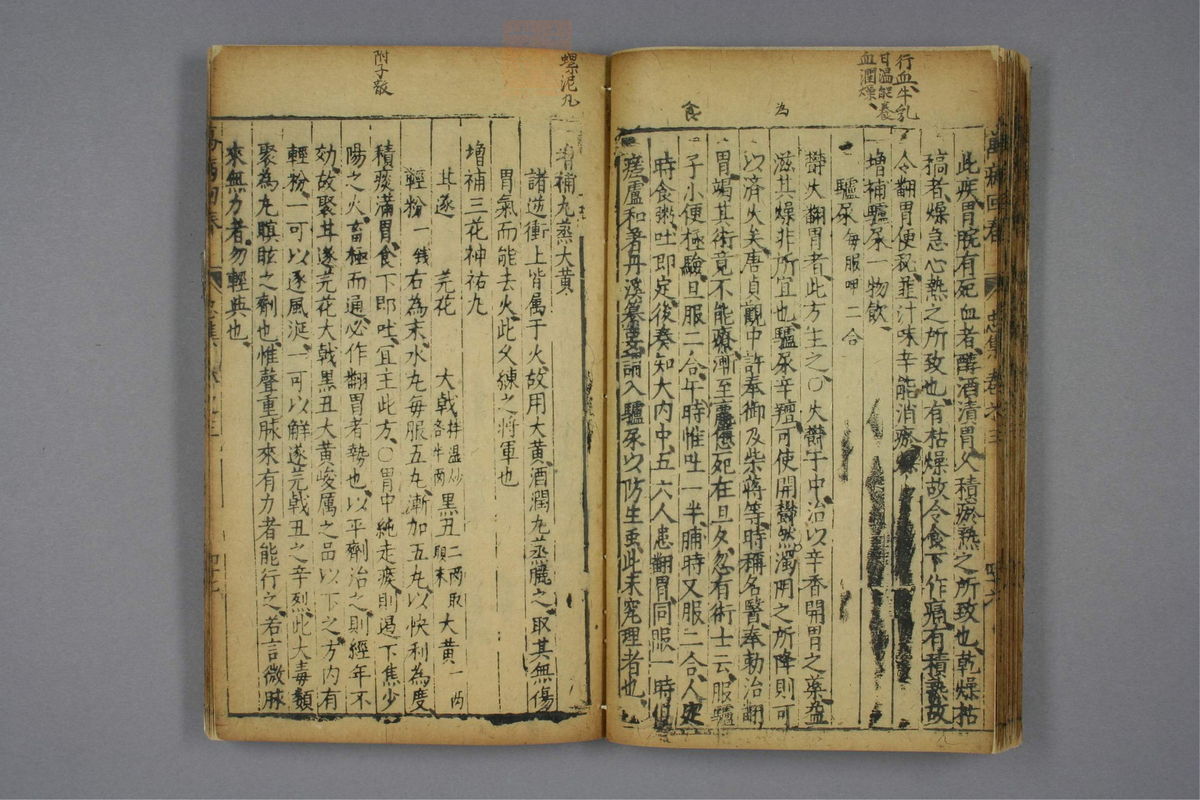 行血牛乳
甘溫能養
血潤燥
為
食
此疾胃脘有死血者醇酒漬胃久積瘀熱之所致也乾燥枯
稿者燥急心熱之所致也有枯燥故令食下作痛有積熱故
令翻胃便秘韭汁味辛能消瘀
增補驢尿一物飲
驢尿每服呷二合
鬱火翻胃者此方主之○火鬱于中治以辛香開胃之藥益
滋其燥非所宜也驢尿辛羶可使開鬱然濁陰之所降則可
以済火矣唐貞觀中許奉御及柴蔣等時稱名醫奉勅治翻
胃竭其術竟不能療漸至死在旦夕忽有術士云服驢
子小便極驗旦服二合午時惟吐一半脯時又服二合人定
時食粥吐即定後奏知大内中五六人患翻胃同服一時俱
瘥盧和著丹溪纂要入驢尿以防生虫此未究理者也
螺泥丸
附子散
增補九蒸大黃
諸逆衝上皆属于火故用大黃酒潤九蒸臓之取其無傷
胃氣而能去火此久練之将軍也
增補三花神祐丸
甘遂 芫花 大戟 黑丑二両取頭末 大黃一両
輕粉一錢右為末水丸毎服五丸漸加五丸以快利為度
積痰滿胃食下即吐宜主此方○胃中純走痰則過下焦少
陽之火畜極而通必作翻胃者勢也以平劑治之則經年不
効故聚甘遂芫花大戟黑丑大黃峻厲之品以下之方内有
輕粉一可以逐風涎一可以解遂芫戟丑之辛烈此大毒類
聚為丸瞑眩之劑也惟聲重脉來有力者能行之若言微脉
來無力者勿輕與也